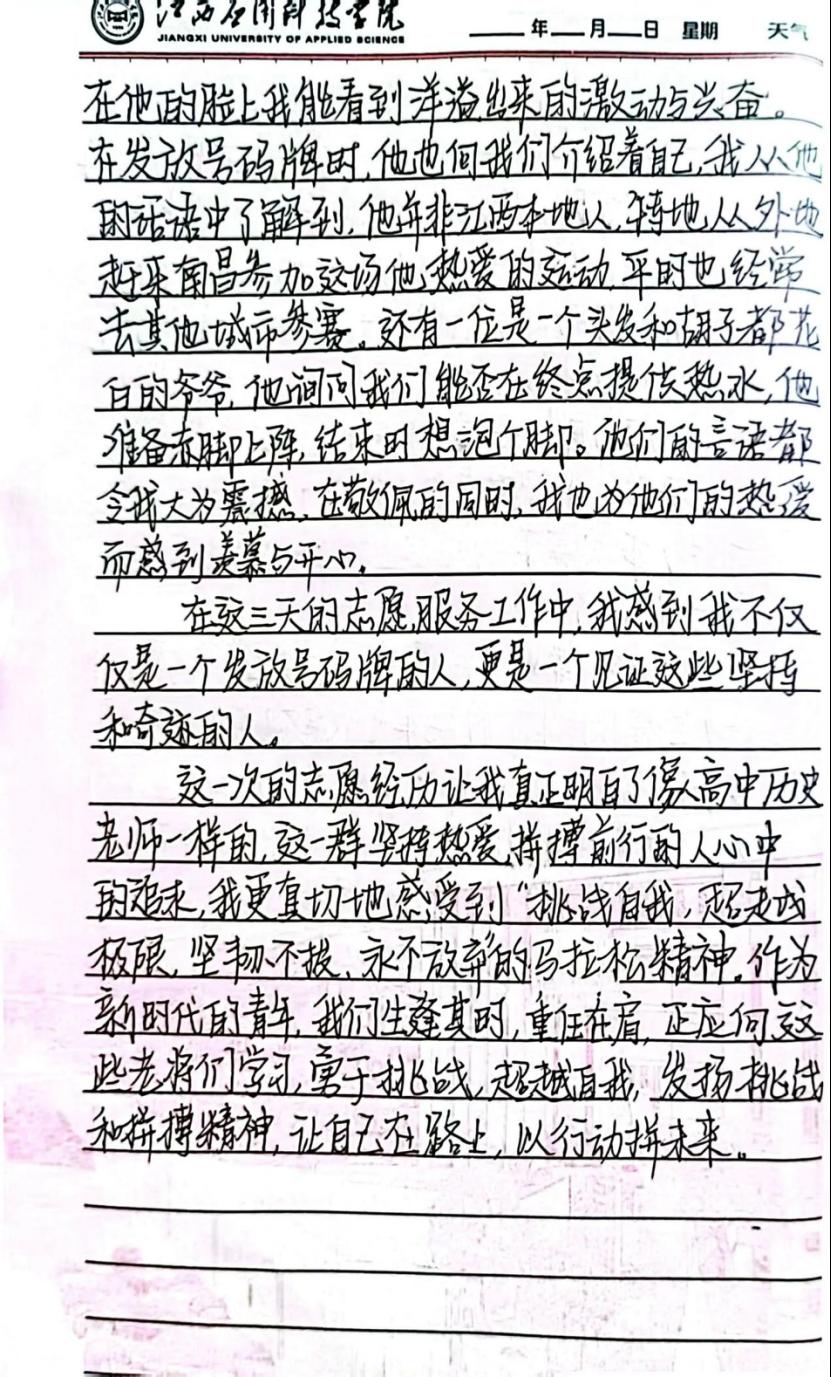 江西应用科技学院
JIANGXI UNIVERSITY OF APPLIED SCIENCE
年 月 日 星期 天气
在他的脸上我能看到洋溢出来的激动与兴奋。
在发放号码牌时,他也向我们介绍着自己,我从他
的话语中了解到,他并非江西本地人,特地从外地
赶来南昌参加这场他热爱的运动,平时也经常
去其他城市参赛。还有一位是一个头发和胡子都花
白的爷爷,他询问我们能否在终点提供热水,他
准备赤脚上阵,结束时想泡个脚。他们的言语都
令我大为震撼,在敬佩的同时,我也为他们的热爱
而感到羡慕与开心。
在这三天的志愿服务工作中,我感到我不仅
仅是一个发放号码牌的人,更是一个见证这些坚持
和奇迹的人。
这一次的志愿经历让我真正明白了像高中历史
老师一样的,这一群坚持热爱,拼搏前行的人心中
的追求,我更真切地感受到“挑战自我,超越
极限,坚韧不拔,永不放弃”的马拉松精神。作为
新时代的青年,我们生逢其时,重任在肩,正应向这
些老将们学习,勇于挑战,超越自我,发扬挑战
和拼搏精神,让自己在路上,以行动拼未来。